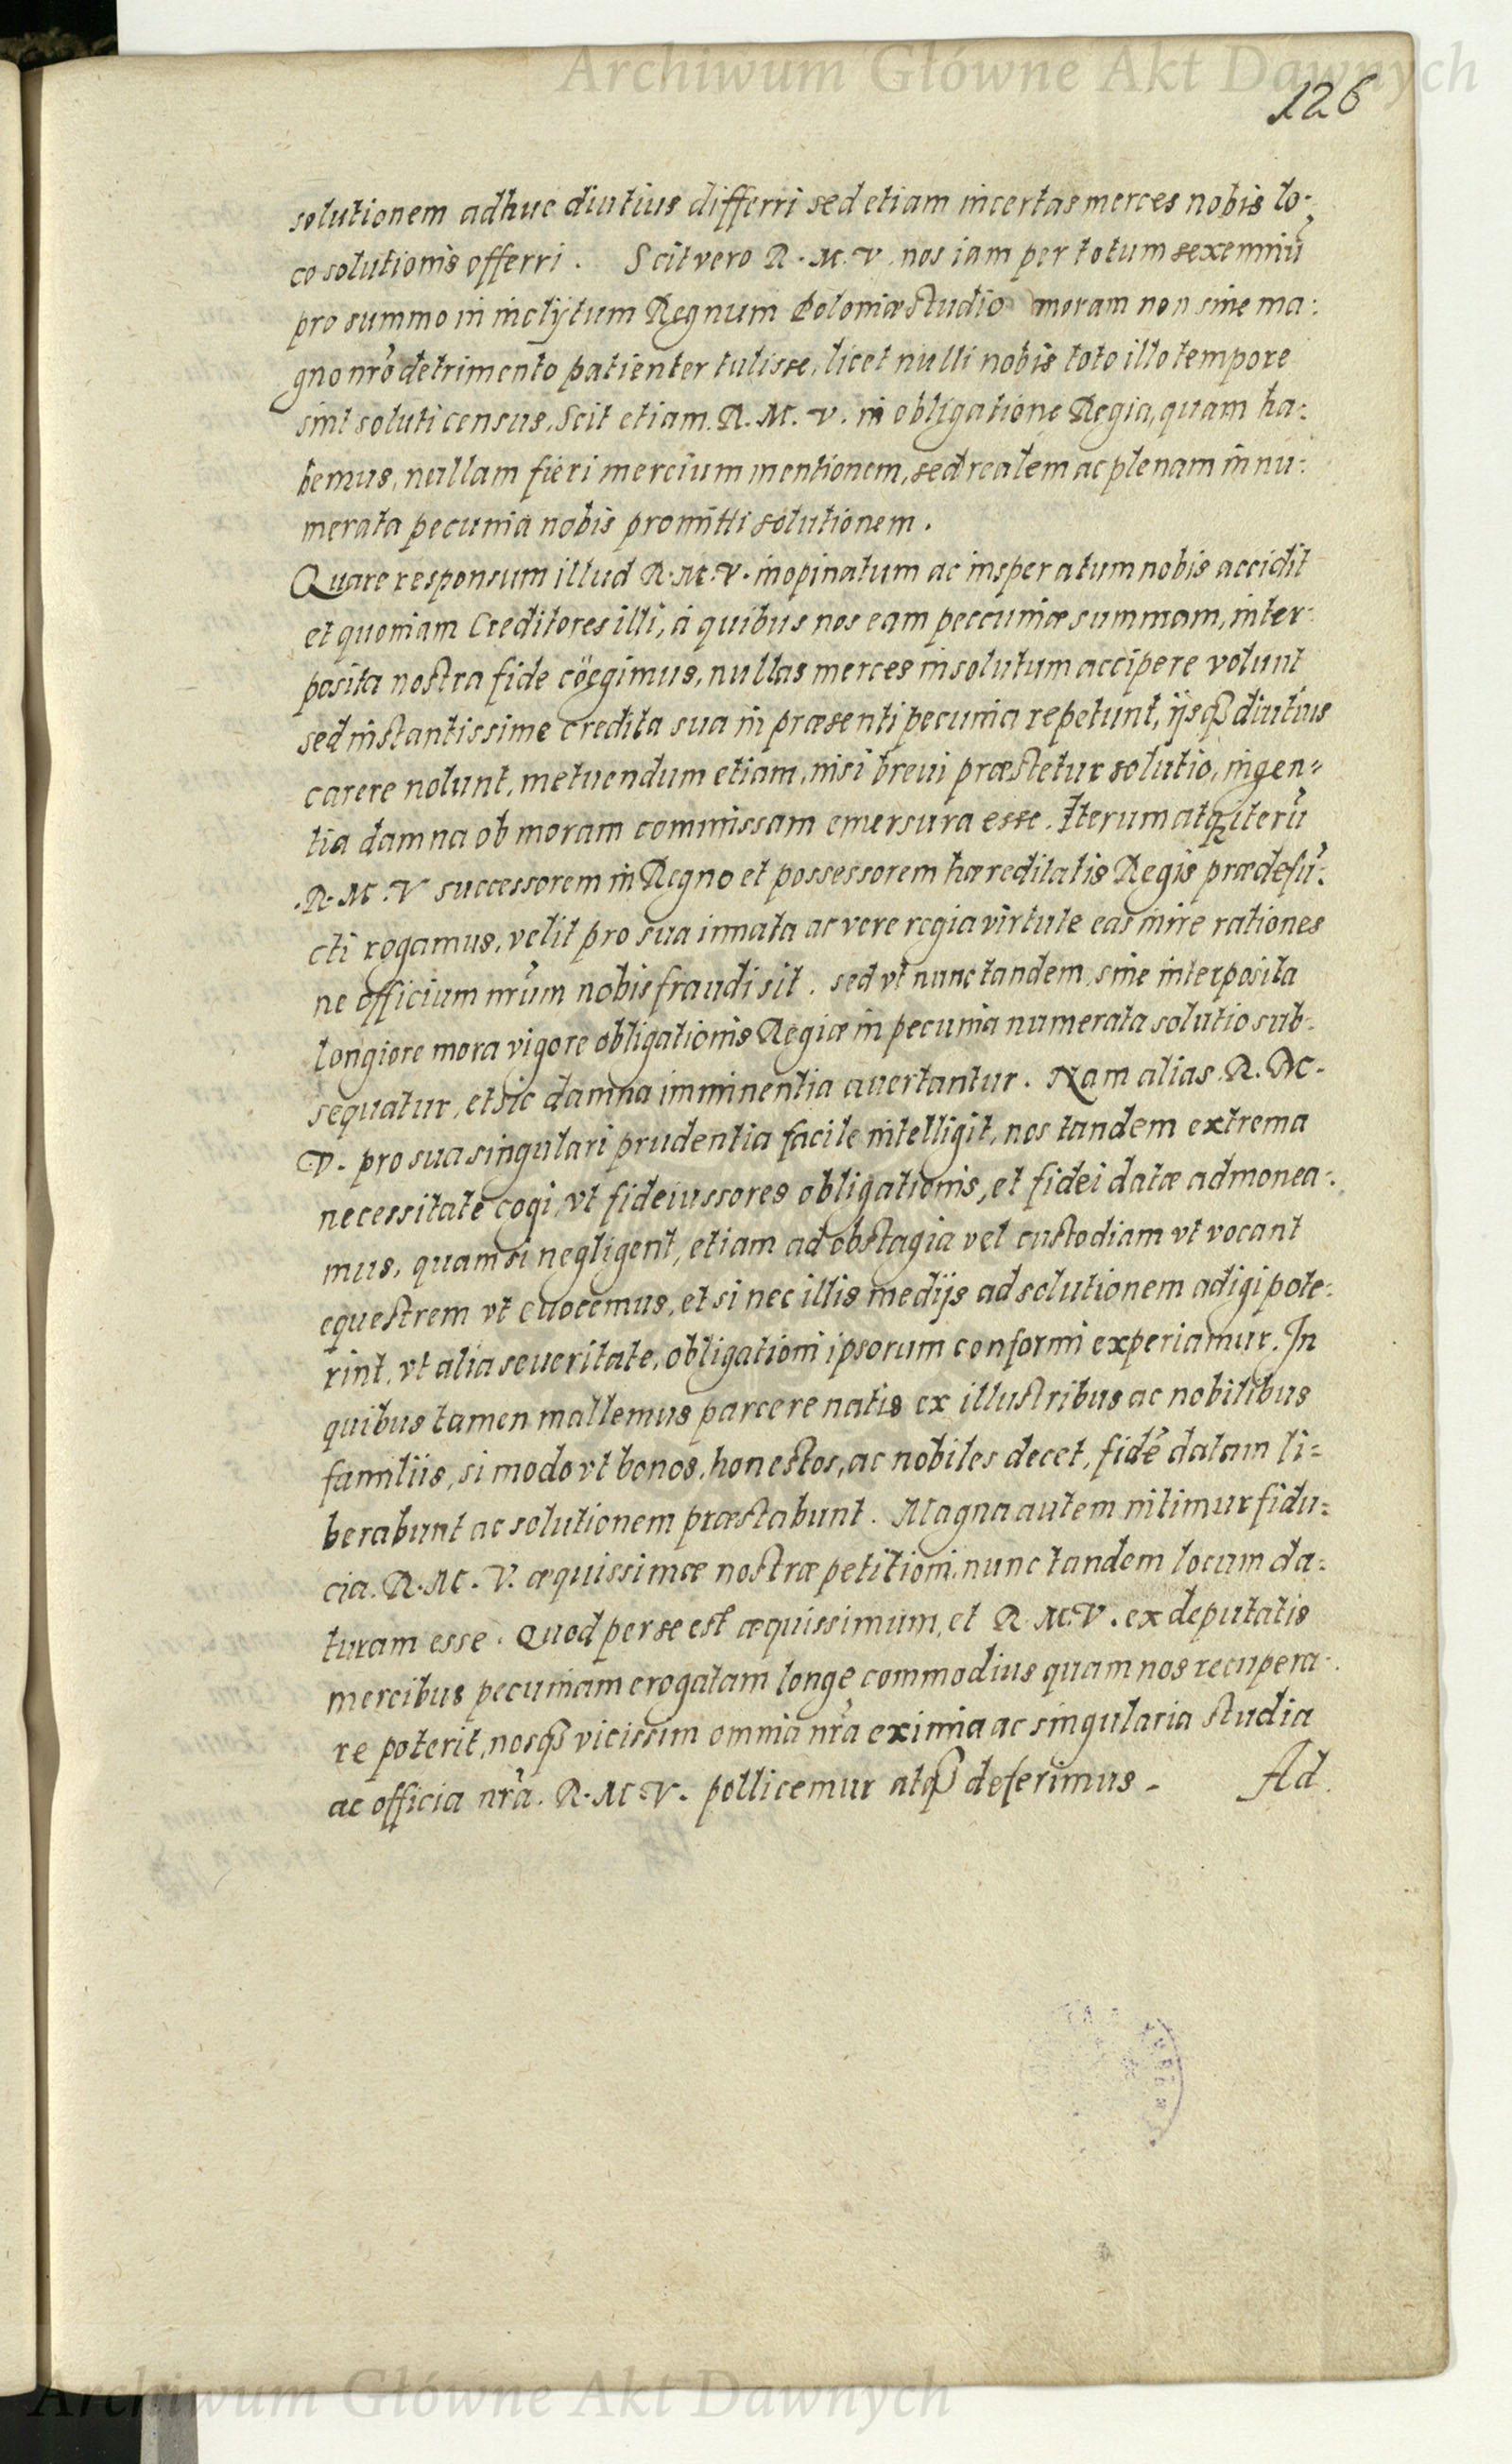 Archiwum Główne Akt Dawnych
126
solutionem adhuc diutius differri sed etiam incertas merces nobis lo-
co solutionis offerri. Scit vero R. M. V. nos iam per totum sexenniū
pro summo in inclÿtum Regnum Poloniæ studio moram non sine ma:
gno nr̃o detrimento patienter tulisse, licet nulli nobis toto illo tempore
sint soluti census. Scit etiam. R. M. V. in obligatione Regia, quam ha:
bemus, nullam fieri mercium mentionem, sed realem ac plenam in nu:
merata pecunia nobis promitti solutionem.
Quare responsum illud R. M. V. inopinatum ac insperatum nobis accidit
et quoniam Creditores illi, à quibus nos eam peccuniæ summam, inter:
posita nostra fide cöegimus, nullas merces in solutum accipere volunt
sed instantissime credita sua in præsenti pecunia repetunt, ijsq₃ diutius
carere nolunt, metuendum etiam, nisi breui præstetur solutio, ingen=
tia damna ob moram commissam emersura esse. Iterum atq₃ iterū
R. M. V successorem in Regno et possessorem hæreditatis Regis prædefū:
cti rogamus, velit pro sua innata ac vere regia virtute eas inire rationes
ne officium nr̃um nobis fraudi sit. sed vt nunc tandem, sine interposita
longiore mora vigore obligationis Regiæ in pecunia numerata solutio sub:
sequatur, et sic damna imminentia auertantur. Nam alias. R. M.
V. pro sua singulari prudentia facile intelligit, nos tandem extrema
necessitate cogi, vt fideiussores obligationis, et fidei datæ admonea:
mus, quam si negligent, etiam ad obstagia vel custodiam vt vocant
equestrem vt euocemus, et si nec illis medijs ad solutionem adigi pote:
rint, vt alia seueritate, obligationi ipsorum conformi experiamur. In
quibus tamen mallemus parcere natis ex illustribus ac nobilibus
familiis, si modo vt bonos, honestos, ac nobiles decet, fidē datam li=
berabunt ac solutionem præstabunt. Magna autem nitimur fidu=
cia. R. M. V. æquissimæ nostræ petitioni, nunc tandem locum da:
turam esse. Quod per se est æquissimum, et R. M. V. ex deputatis
mercibus pecuniam erogatam longe commodius quam nos recupera:
re poterit, nosq₃ vicissim omnia nr̃a eximia ac singularia studia
ac officia nr̃a. R. M. V. pollicemur atq₃ deferimus. Ad
Archiwum Główne Akt Dawnych